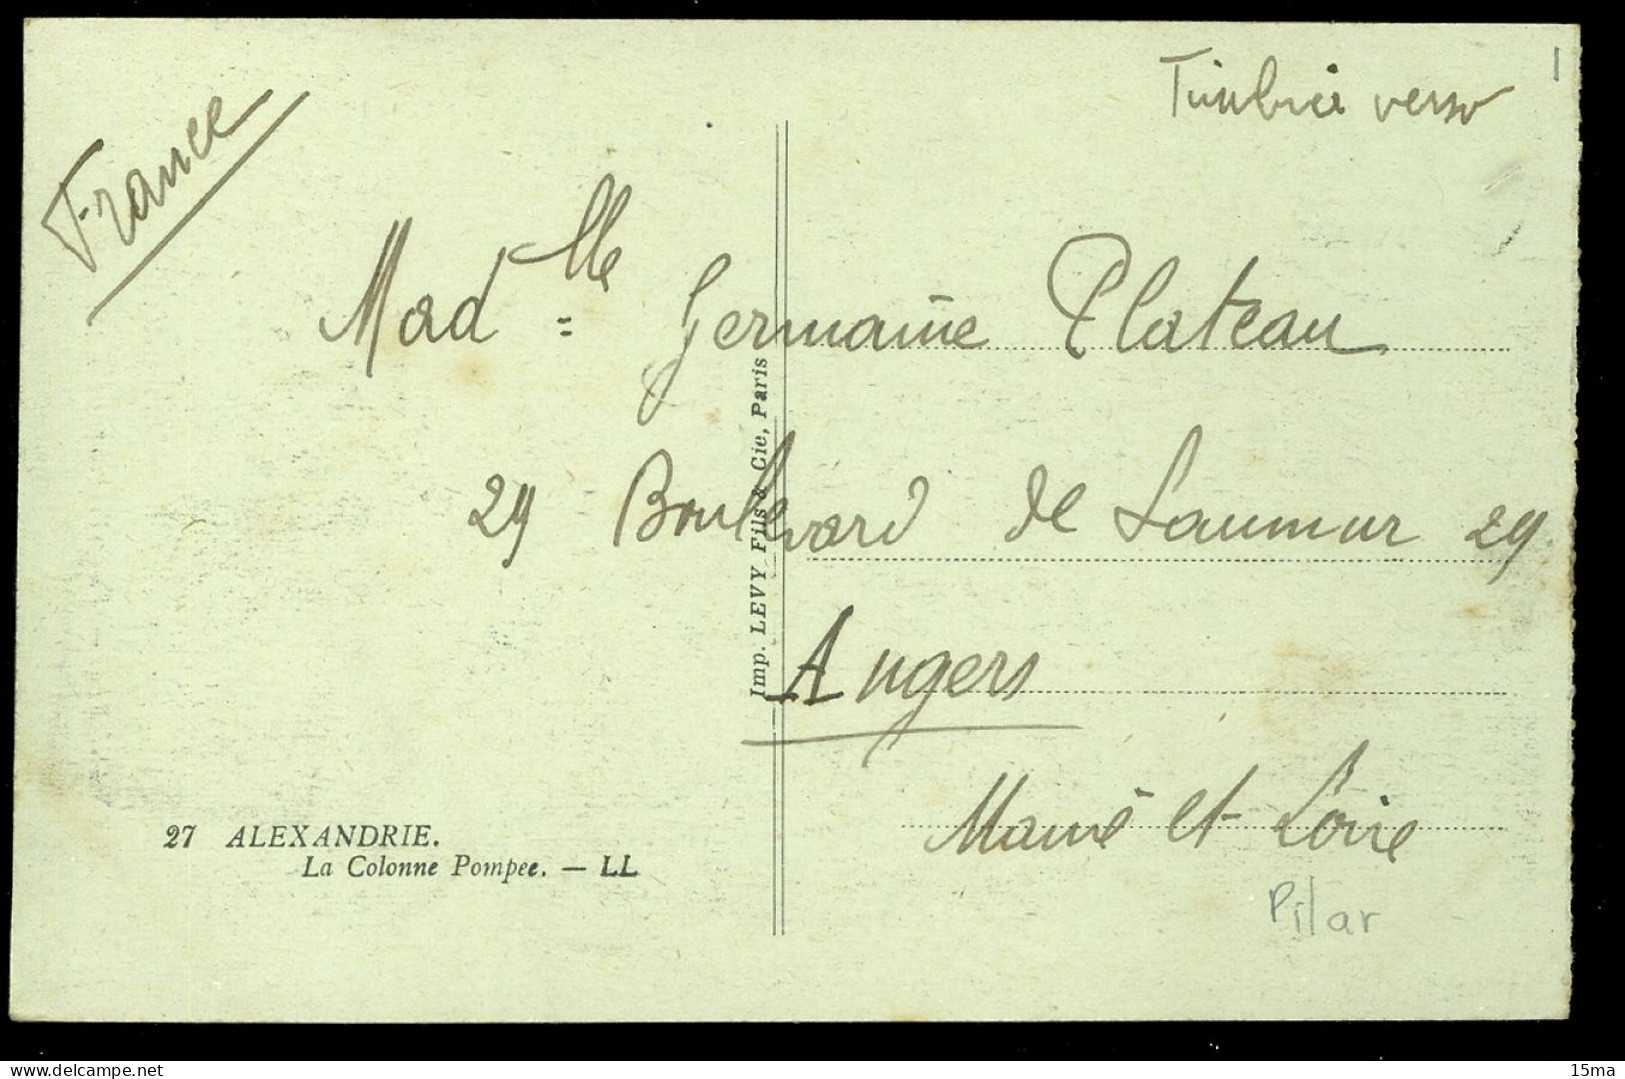 France
Timbrée verso
Mad^lle = Germaine Plateau
29 Boulevard de Saumur 29
Angers
Maine et Loire
Pilar
Imp. LEVY Fils & Cie, Paris
27 ALEXANDRIE.
La Colonne Pompee. — LL
15ma